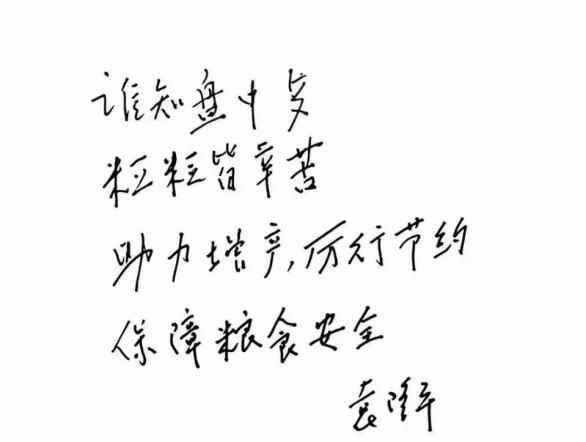 谁知盘中餐
粒粒皆辛苦
助力增产,厉行节约
保障粮食安全
袁隆平